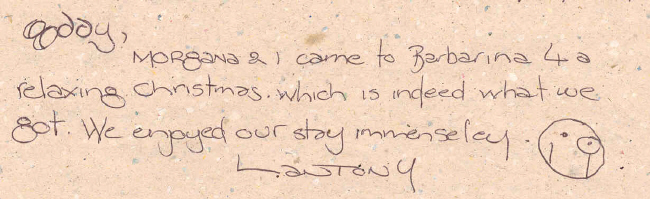 gday,
MORgANA & I came to Barbarina 4 a
relaxing Christmas. which is indeed what we
got. We enjoyed our stay immenseley.
L.ANTONY